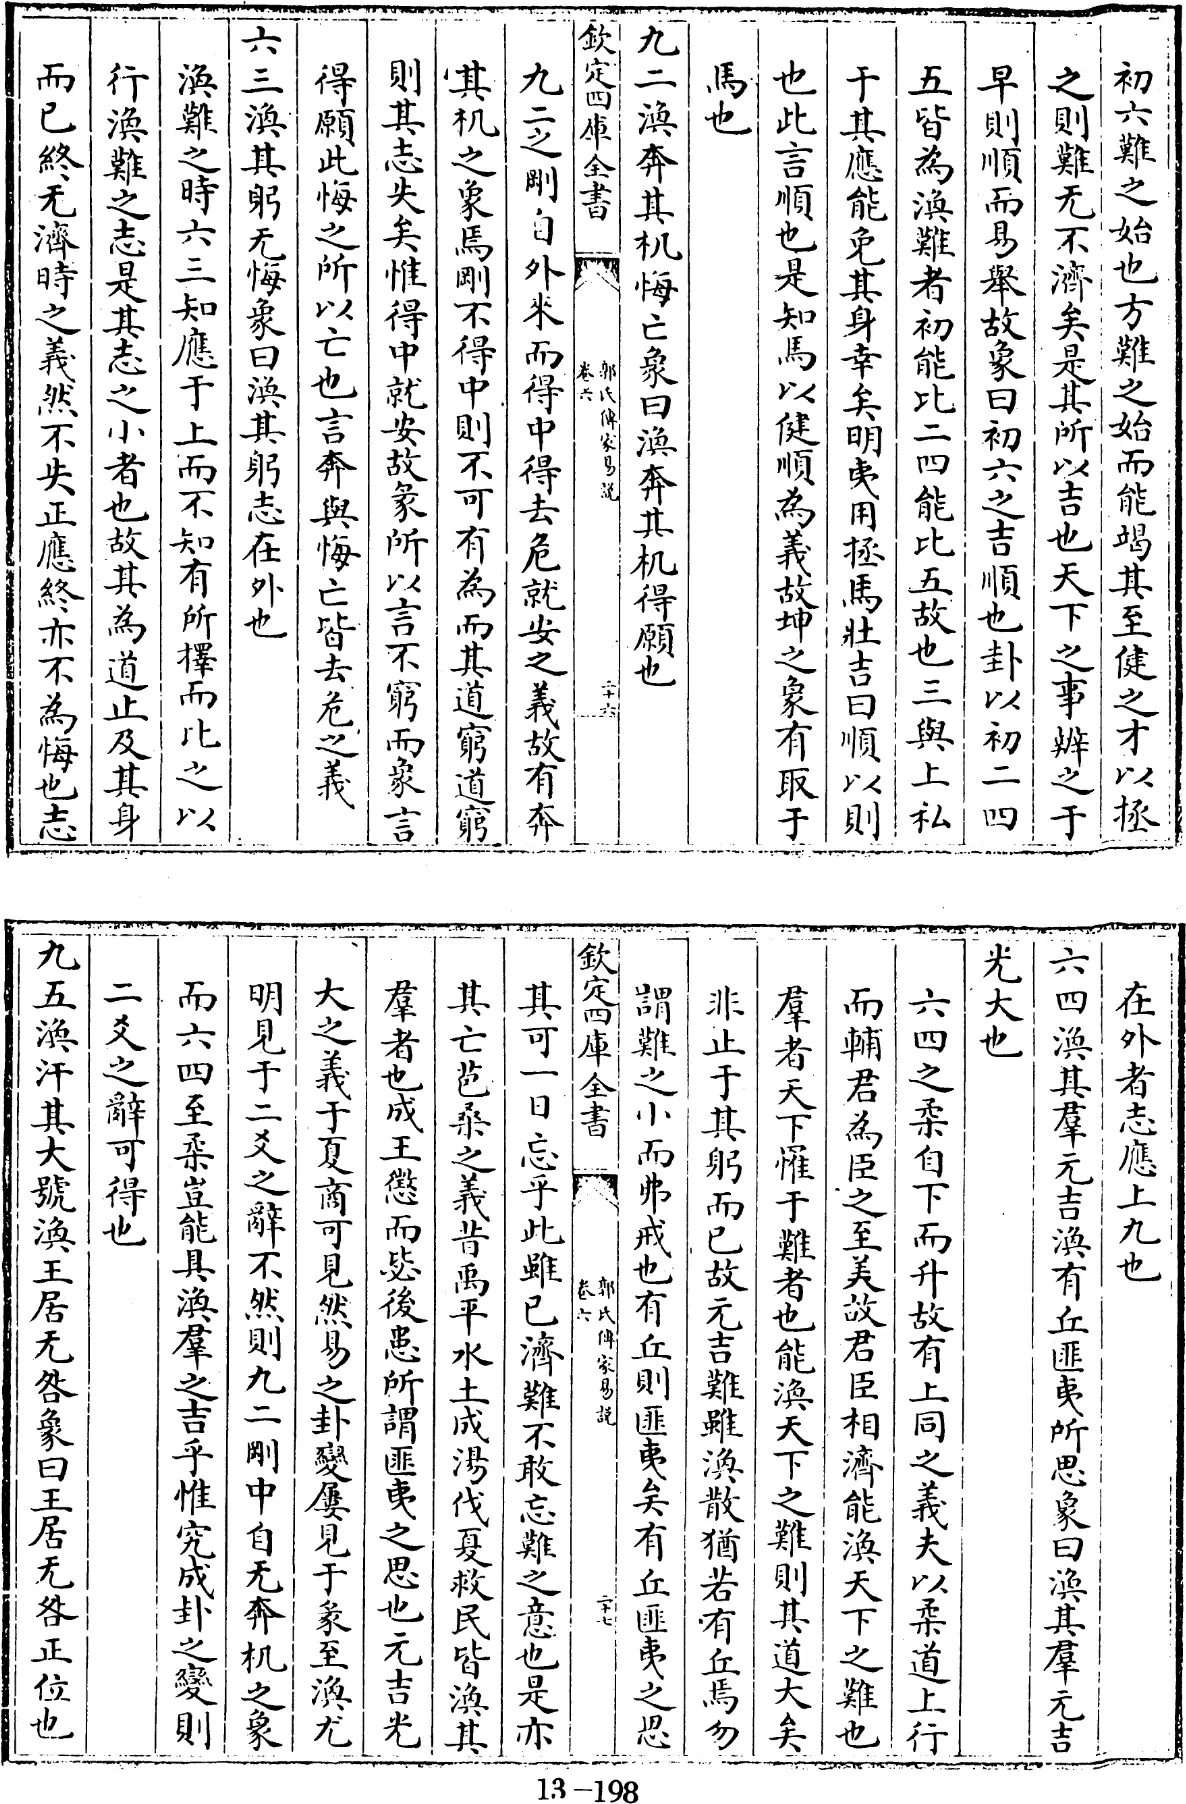 初六難之始也方難之始而能竭其至健之才以拯
之則難无不濟矣是其所以吉也天下之事辨之于
早則順而易舉故象曰初六之吉順也卦以初二四
五皆為渙難者初能比二四能比五故也三與上私
于其應能免其身幸矣明夷用拯馬壯吉曰順以則
也此言順也是知馬以健順為義故坤之象有取于
馬也
九二渙奔其机悔亡象曰渙奔其机得願也
欽定四庫全書
郭氏傳家易說
卷六
二十六
九二之剛自外來而得中得去危就安之義故有奔
其机之象焉剛不得中則不可有為而其道窮道窮
則其志失矣惟得中就安故彖所以言不窮而象言
得願此悔之所以亡也言奔與悔亡皆去危之義
六三渙其躬无悔象曰渙其躬志在外也
渙難之時六三知應于上而不知有所擇而比之以
行渙難之志是其志之小者也故其為道止及其身
而已終无濟時之義然不失正應終亦不為悔也志
在外者志應上九也
六四渙其羣元吉渙有丘匪夷所思象曰渙其羣元吉
光大也
六四之柔自下而升故有上同之義夫以柔道上行
而輔君為臣之至美故君臣相濟能渙天下之難也
羣者天下罹于難者也能渙天下之難則其道大矣
非止于其躬而已故元吉難雖渙散猶若有丘焉勿
謂難之小而弗戒也有丘則匪夷矣有丘匪夷之思
欽定四庫全書
郭氏傳家易說
卷六
二十七
其可一日忘乎此雖已濟難不敢忘難之意也是亦
其亡苞桑之義昔禹平水土成湯伐夏救民皆渙其
羣者也成王懲而毖後患所謂匪夷之思也元吉光
大之義于夏商可見然易之卦變屢見于彖至渙尤
明見于二爻之辭不然則九二剛中自无奔机之象
而六四至柔豈能具渙羣之吉乎惟究成卦之變則
二爻之辭可得也
九五渙汗其大號渙王居无咎象曰王居无咎正位也
13-198